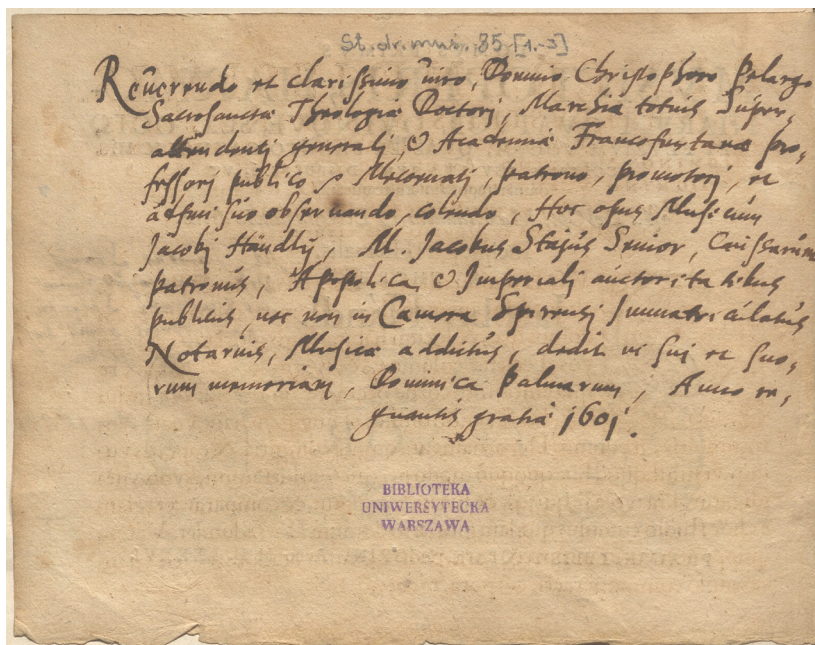 St. dr. mus. 85 [1.-3]
Reũerendo et clarissimo ũiro, Domino Christophoro Pelargo
Sacrosanctæ Theologiæ Doctorj, Marchiæ totius Super-
attendentj generalj, & Academiæ Francofurtanæ pro-
fessorj publico, Mecœnatj, patrono, promotorj, et
adfini sũo obserũando, colendo, Hoc opus Musicũm
Jacobj Händlij, M. Jacobus Senior, Caussarũm
patronũs, Apostolica & Imperialj aũctoritatibus
publicũs, nec non in Camera Spirensj Immatricũlatũs
Notariũs, Musicæ addictũs, dedit in sũj et sũo-
rum memoriam, Dominica Palmarum, Anno re-
gnantis gratiæ 1601.
BIBLIOTEKA
UNIWERSYTECKA
WARSZAWA